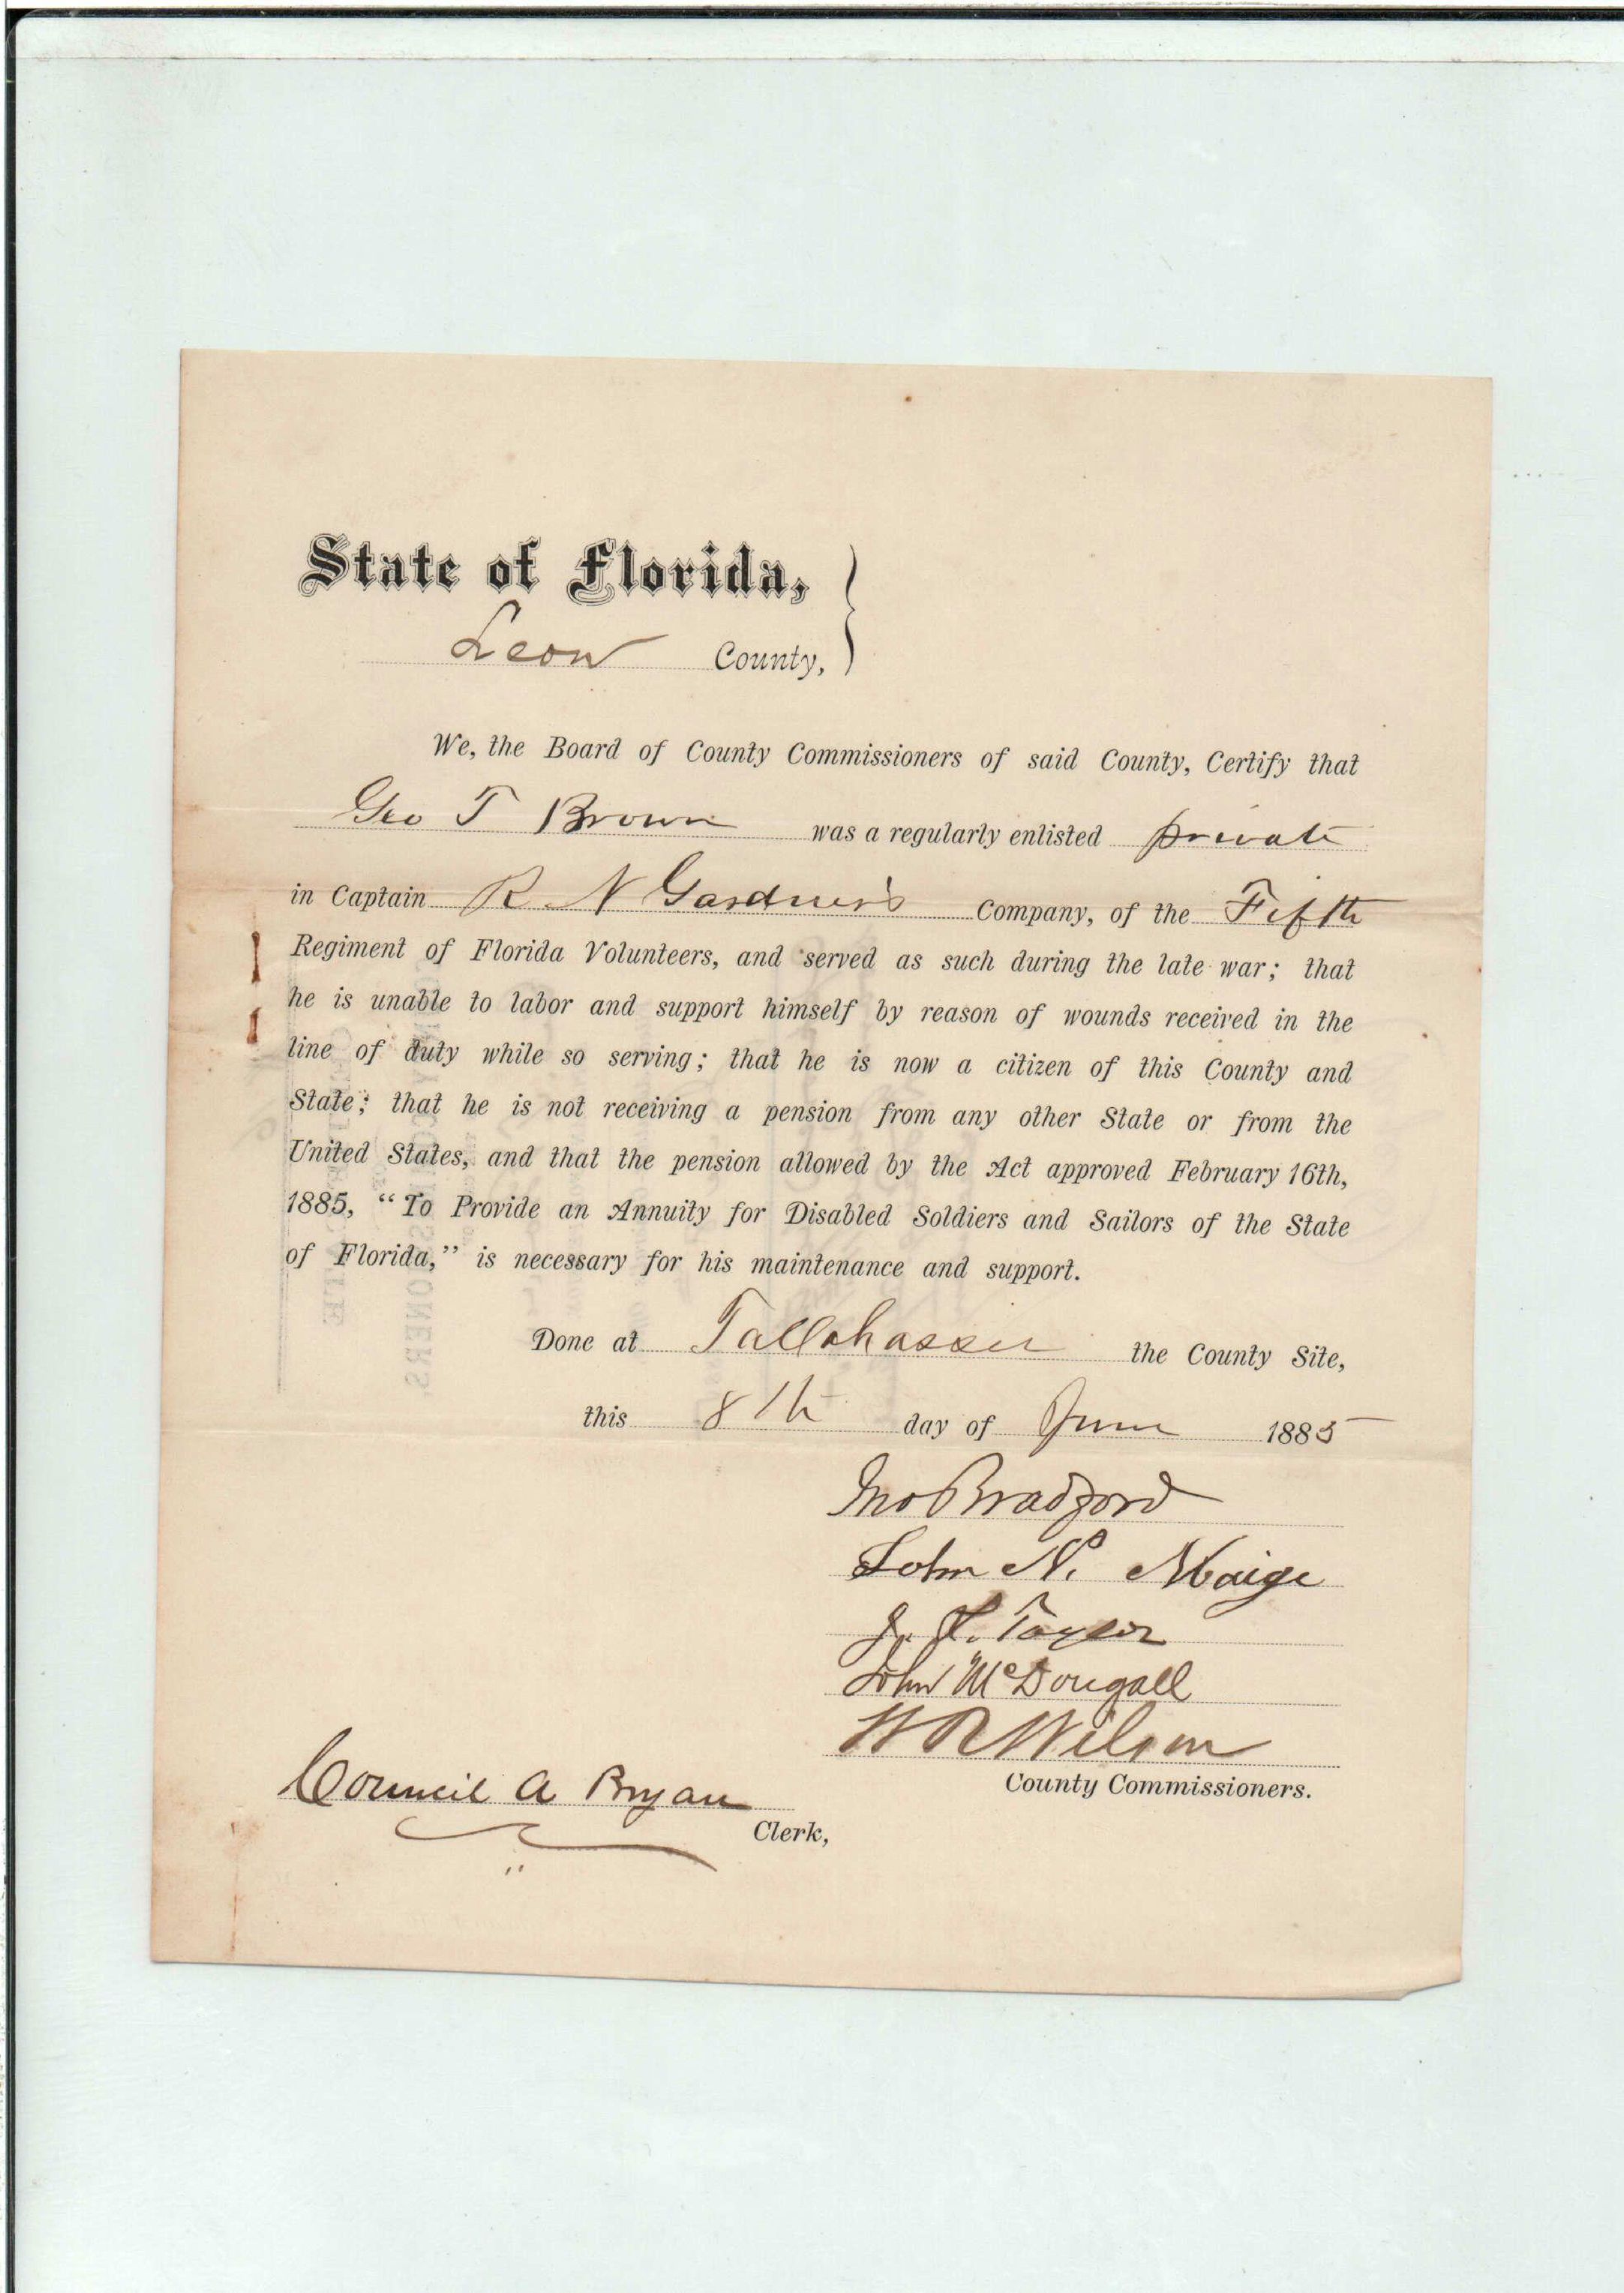 State of Florida,
Leon County,
We, the Board of County Commissioners of said County, Certify that
Geo T Brown was a regularly enlisted private
in Captain R. N Gardner's Company, of the Fifth
Regiment of Florida Volunteers, and served as such during the late war; that
he is unable to labor and support himself by reason of wounds received in the
line of duty while so serving; that he is now a citizen of this County and
State; that he is not receiving a pension from any other State or from the
United States, and that the pension allowed by the Act approved February 16th,
1885, “To Provide an Annuity for Disabled Soldiers and Sailors of the State
of Florida,” is necessary for his maintenance and support.
Done at Tallahassee the County Site,
this 8th day of June 1885
Jno Bradford
John N. Maige
J. Taylor
John McDougall
W R Wilson
County Commissioners.
Council A Bryan
Clerk,